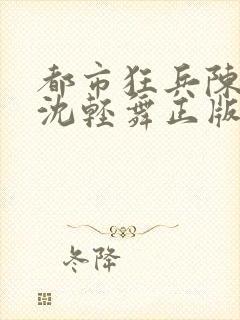 都市狂兵陳
沈輕舞正版
冬降